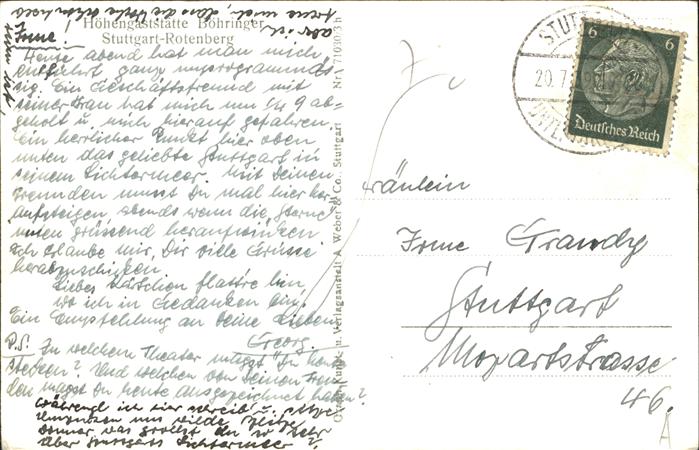 Höhengaststätte Böhringer
Stuttgart-Rotenberg
Irme!
Heute abend hat man mich
entführt ganz unprogrammäs-
sig. Ein Geschäftsfreund mit
seiner Frau hat mich um 1/4 9 ab-
geholt u. mich hierauf gefahren.
Ein herrlicher Punkt hier oben
unten das geliebte Stuttgart in
seinem Lichtermeer. Mit Deinen
Freunden musst Du mal hier her-
aufsteigen, abends wenn die Sterne
unten grüssend heraufwinken
Ich erlaube mir, Dir viele Grüsse
herabzuschicken.
Liebes Kärtchen flattre hin,
wo ich in Gedanken bin.
Ein Empfehlung an Deine Lieben
Georg.
P.S. Zu welchem Theater magst Du
stecken? Und welchen von Deinen
Du heute ausgezeichnet haben?
Während ich hier schreib u.
uns wilde Blitze
Donner was grollst du so sehr
über Stuttgarts Lichtermeer?
Graph. Kunst- u. Verlagsanstalt A. Weber & Co., Stuttgart Nr.
STUTTGART
20.7.
UNTERTÜRKHEIM
6 6
Deutsches Reich
Fräulein
Irme Grandy
Stuttgart
Mozartstrasse
46.